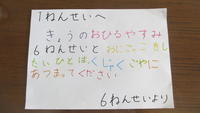 1ねんせいへ
きょうのおひるやすみ
6ねんせいとおにごっこをし
たいひとは、くじゃくごやに
あつまってください
6ねんせいより